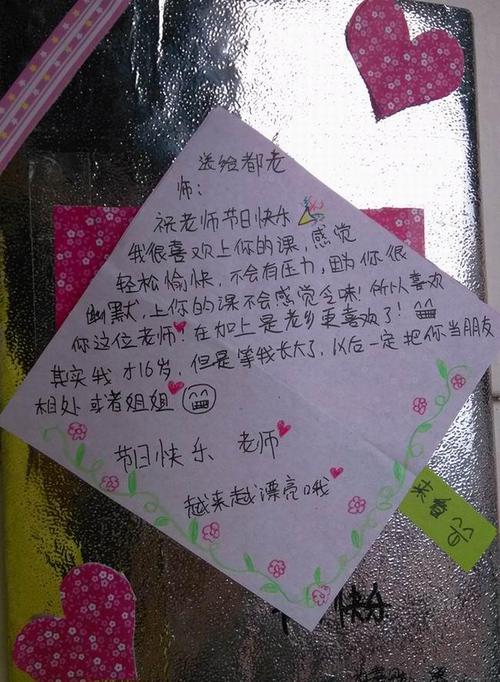 送给都老
师：
祝老师节日快乐
我很喜欢上你的课，感觉
轻松愉快，不会有压力，因为你很
幽默，上你的课不会感觉乏味！所以喜欢
你这位老师！在加上是老乡更喜欢了！
其实我才16岁，但是等我长大了，以后一定把你当朋友
相处或者姐姐
节日快乐 老师
越来越漂亮哦
快